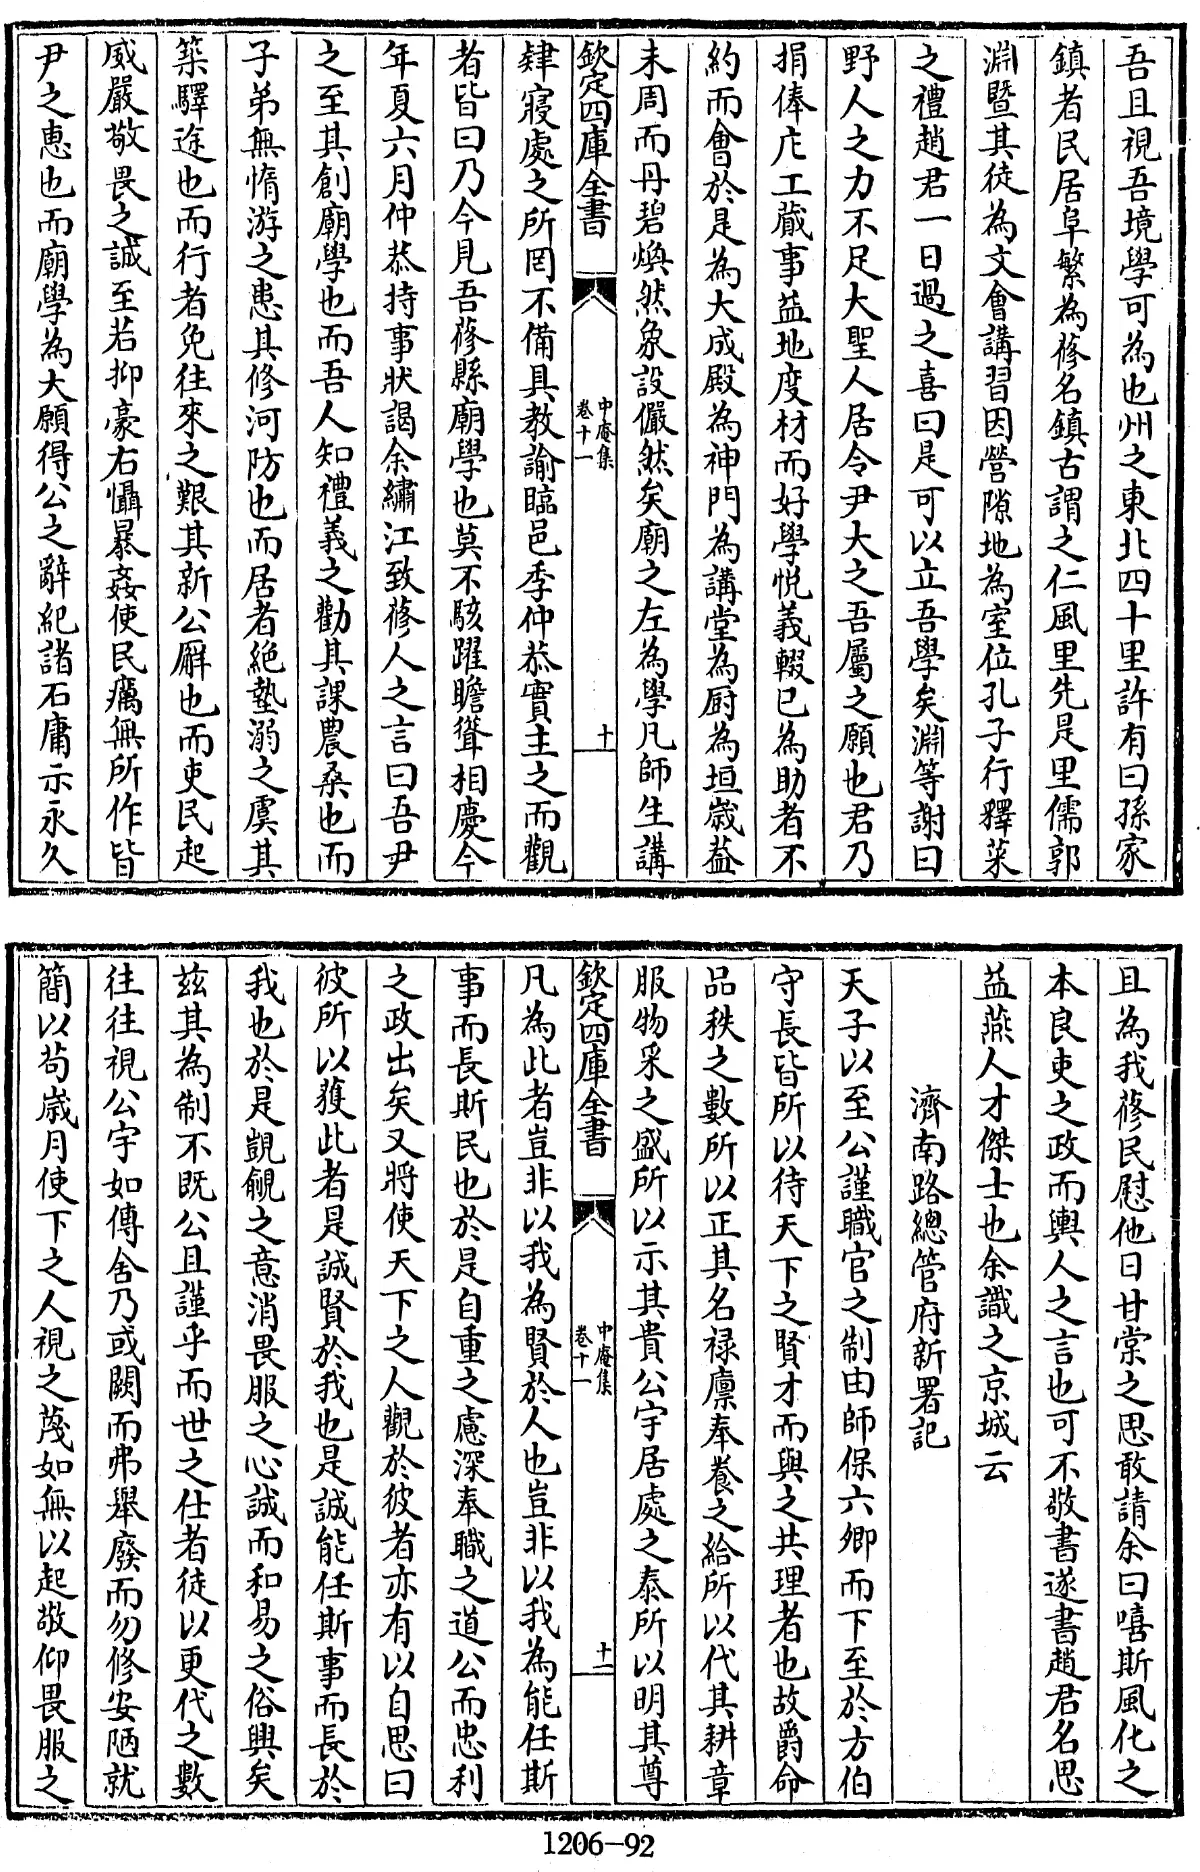 吾且視吾境學可為也州之東北四十里許有曰孫家
鎮者民居阜繁為蓚名鎮古謂之仁風里先是里儒郭
淵暨其徒為文會講習因營隙地為室位孔子行釋菜
之禮趙君一日過之喜曰是可以立吾學矣淵等謝曰
野人之力不足大聖人居令尹大之吾屬之願也君乃
捐俸庀工蕆事益地度材而好學悦義輟已為助者不
約而會於是為大成殿為神門為講堂為厨為垣歳葢
未周而丹碧煥然象設儼然矣廟之左為學凡師生講
欽定四庫全書
中庵集
卷十一
十
肄寢處之所罔不備具教諭臨邑季仲恭實主之而觀
者皆曰乃今見吾蓚縣廟學也莫不駭躍瞻聳相慶今
年夏六月仲恭持事狀謁余繡江致蓚人之言曰吾尹
之至其創廟學也而吾人知禮義之勸其課農桑也而
子弟無惰游之患其修河防也而居者絶墊溺之虞其
築驛途也而行者免往來之艱其新公廨也而吏民起
威嚴敬畏之誠至若抑豪右懾暴姦使民癘無所作皆
尹之恵也而廟學為大願得公之辭紀諸石庸示永久
且為我蓚民慰他日甘棠之思敢請余曰嘻斯風化之
本良吏之政而輿人之言也可不敬書遂書趙君名思
益燕人才傑士也余識之京城云
濟南路總管府新署記
天子以至公謹職官之制由師保六卿而下至於方伯
守長皆所以待天下之賢才而與之共理者也故爵命
品秩之數所以正其名禄廪奉養之給所以代其耕章
服物采之盛所以示其貴公宇居處之泰所以明其尊
欽定四庫全書
中庵集
卷十一
十一
凡為此者豈非以我為賢於人也豈非以我為能任斯
事而長斯民也於是自重之慮深奉職之道公而忠利
之政出矣又將使天下之人觀於彼者亦有以自思曰
彼所以獲此者是誠賢於我也是誠能任斯事而長於
我也於是覬覦之意消畏服之心誠而和易之俗興矣
兹其為制不既公且謹乎而世之仕者徒以更代之數
往往視公宇如傳舍乃或闕而弗舉廢而勿修安陋就
簡以茍歳月使下之人視之蔑如無以起敬仰畏服之
1206-92